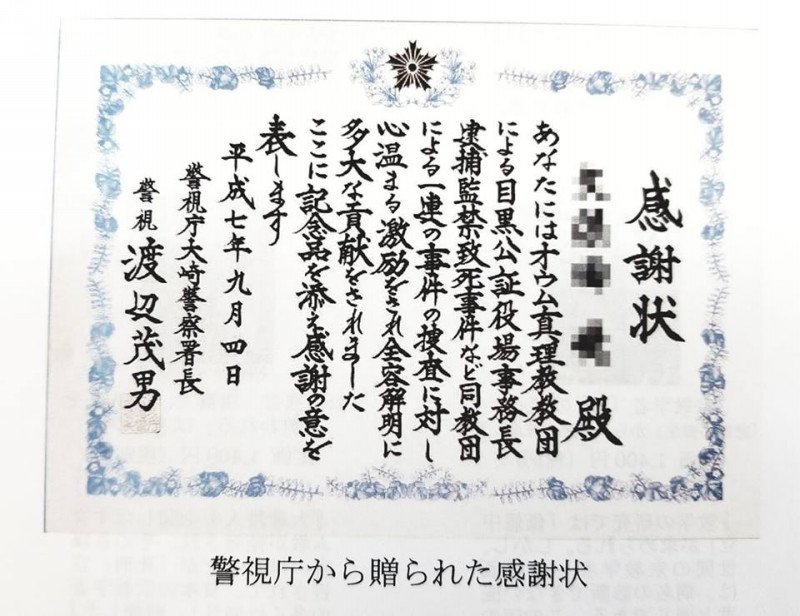 感謝状
殿
あなたにはオウム真理教教団
による目黒公証役場事務長
逮捕監禁致死事件など同教団
による一連の事件の捜査に対し
心温まる激励をされ全容解明に
多大な貢献をされました
ここに記念品を添え感謝の意を
表します
平成七年九月四日
警視庁大崎警察署長
警視 渡辺茂男
警視庁から贈られた感謝状